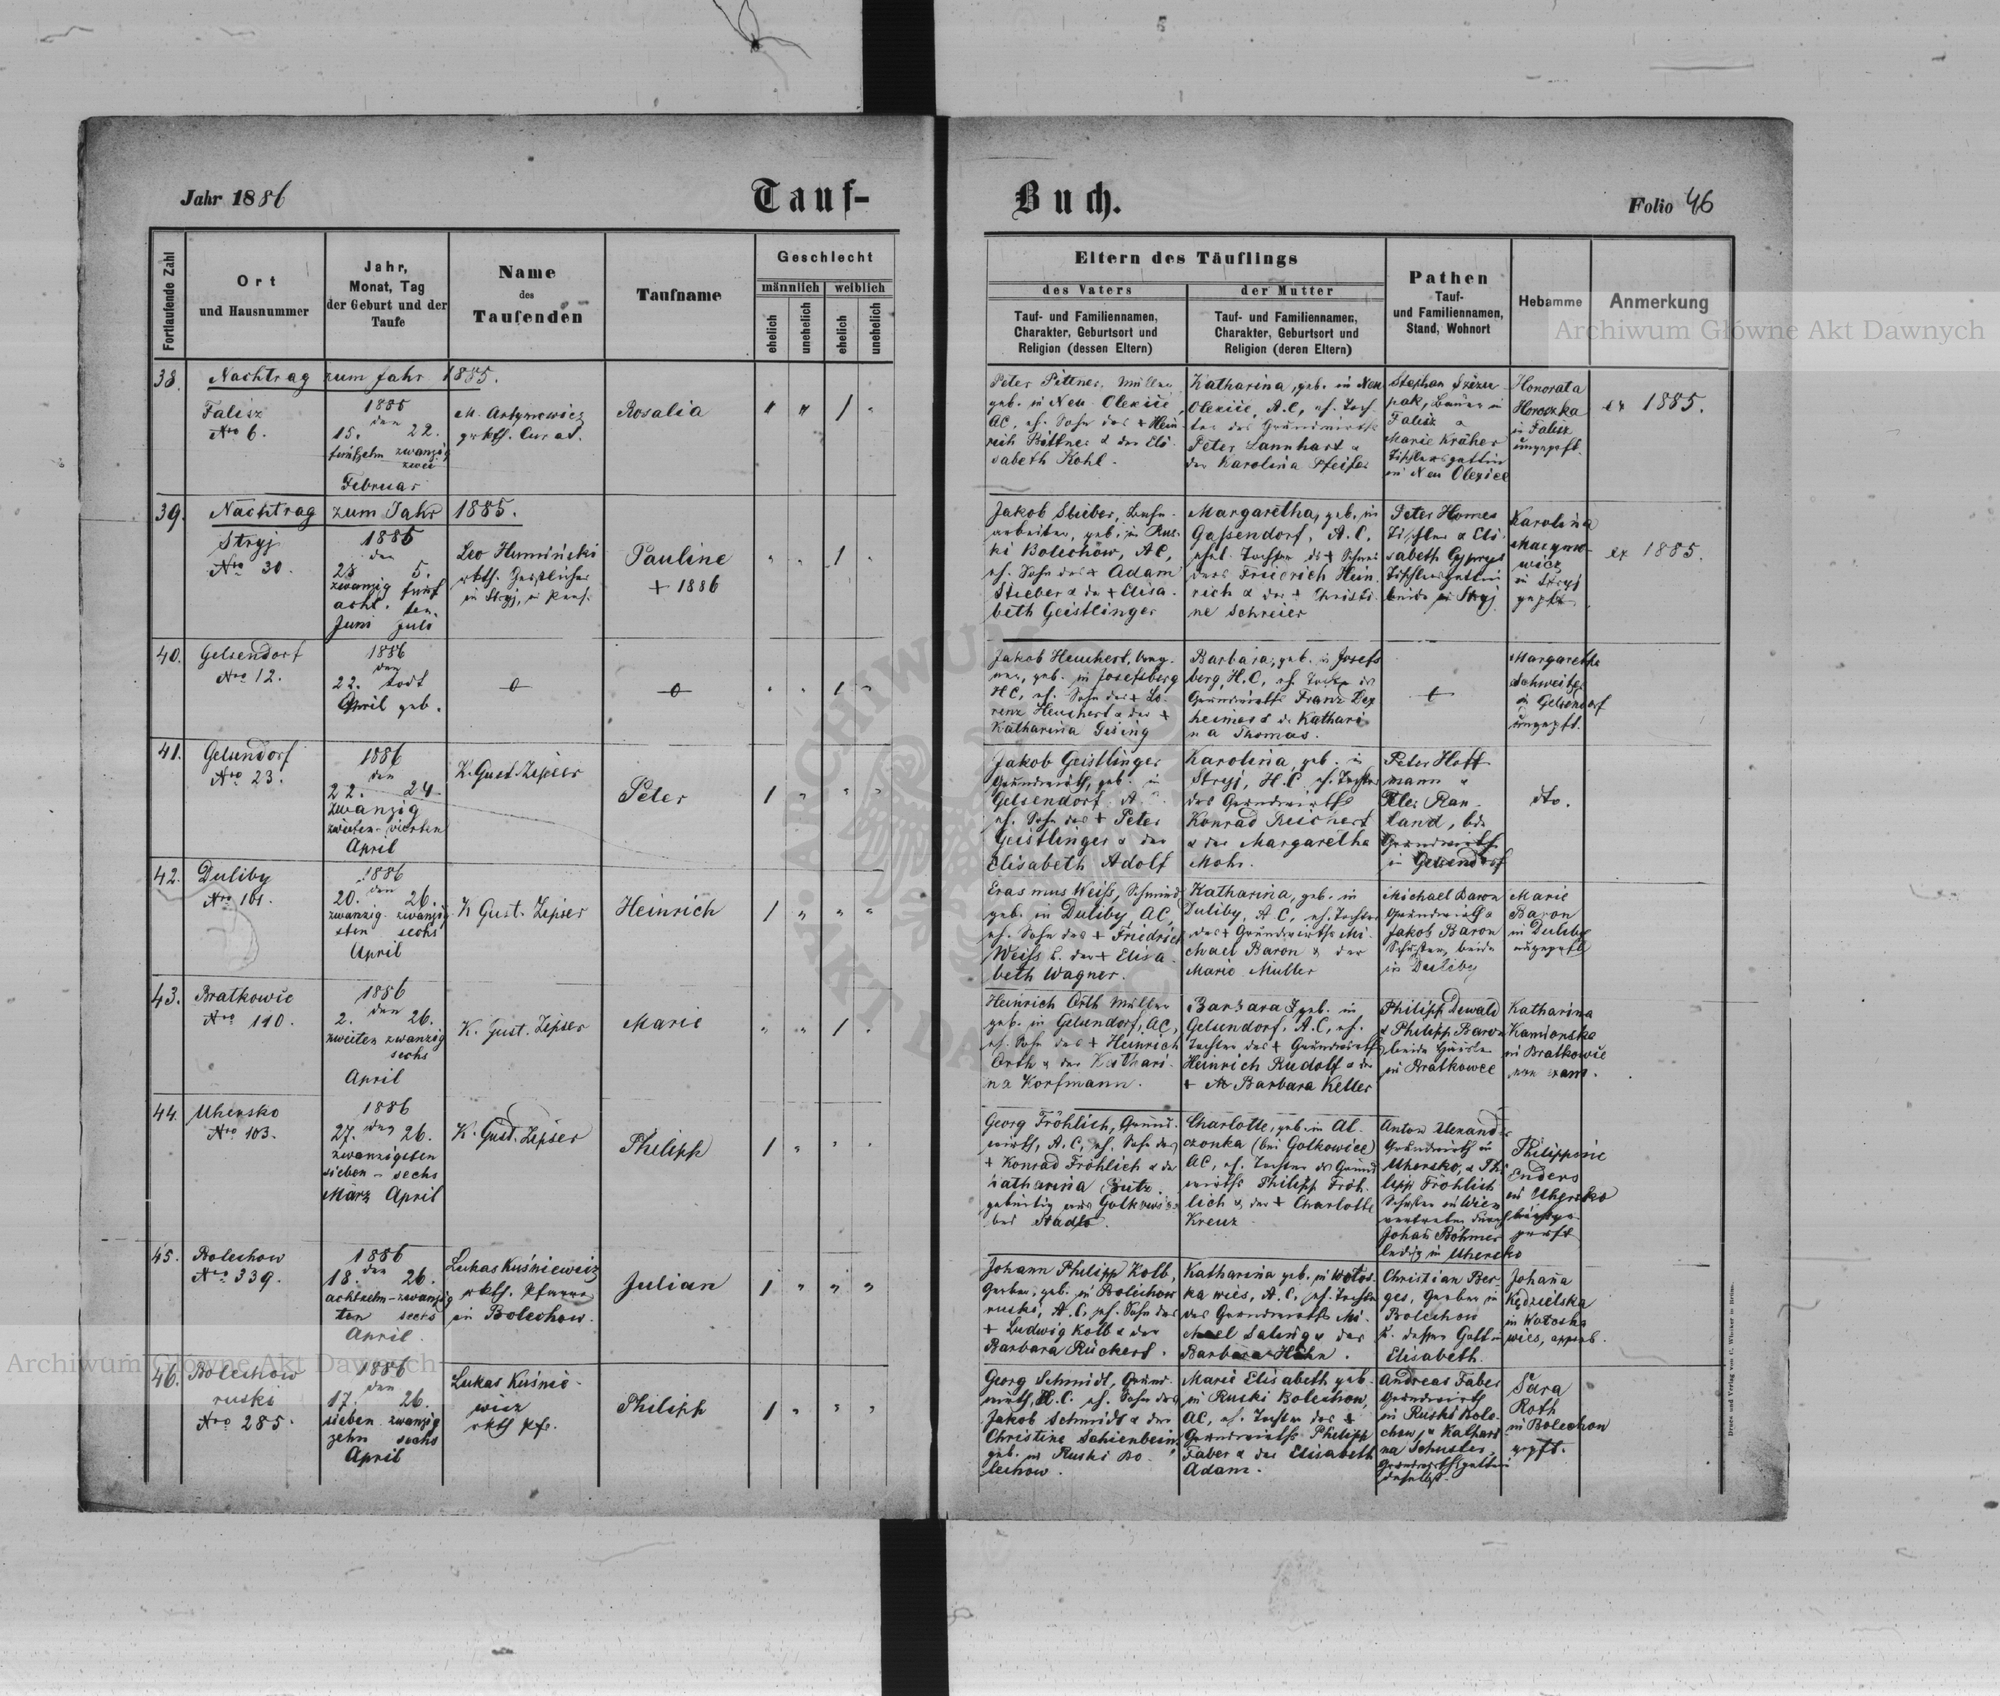 Jahr 1886
Tauf-
Buch.
Folio 46
Fortlaufende Zahl
Ort
und Hausnummer
Jahr,
Monat, Tag
der Geburt und der
Taufe
Name
des
Taufenden
Taufname
Geschlecht
männlich
weiblich
ehelich
unehelich
ehelich
unehelich
Eltern des Täuflings
des Vaters
Tauf- und Familiennamen,
Charakter, Geburtsort und
Religion (dessen Eltern)
der Mutter
Tauf- und Familiennamen,
Charakter, Geburtsort und
Religion (deren Eltern)
Pathen
Tauf-
und Familiennamen,
Stand, Wohnort
Hebamme
Anmerkung
Archiwum Główne Akt Dawnych
38.
Nachtrag zum Jahr 1885.
Falisz
Nro 6.
1885
den
15. 22.
fünfzehn zwanzig
zwei
Februar
M. Artymowicz
grkth. Curat.
Rosalia
" " 1 "
Peter Pittner, Müller
geb. in Neu Olexiec,
AC, eh. Sohn des + Hein
rich Bittner & der Eli
sabeth Kohl.
Katharina, geb. in Neu
Olexiec, A.C, eh. Toch
ter des Grundwirths
Peter Lannhart &
der Karolina Pfeifer
Stephan
Bauer in
Falisz &
Marie Kräher
Tischlersgattin
in Neu Olexiec
Honorata
in Falisz
ungeprft.
ex 1885.
39.
Nachtrag zum Jahr 1885.
Stryj
Nro 30.
1885
den
28 5.
zwanzig fünf
acht. ten
Juni Juli
Leo Humiński
rkth. Geistlicher
in Stryj, in Pens.
Pauline
+ 1886
" " 1 "
Jakob Stieber, Bahn-
arbeiter, geb. in Rus-
ki Bolechów, AC,
eh. Sohn des + Adam
Stieber & der + Elisa-
beth Geistlinger
Margaretha, geb. in
Gassendorf, A.C,
ehel. Tochter des + Schnei
ders Friedrich Hein
rich & der + Christi
ne Schreier
Peter Homes
Tischler & Eli
sabeth
Tischlersgattin
beide in Stryj
Karolina
Marymo-
wicz
in Stryj
geprft.
ex 1885.
40.
Gelsendorf
Nro 12.
1886
den
22. todt
April geb.
" " 1 "
Jakob Heuchert,
geb. in Josefsberg
HC, eh. Sohn des + Lo-
renz Heuchert & der +
Katharina Gesing
Barbara, geb. in Josefs
berg, H.C, eh. Tochter des
Grundwirths Franz Dex
heimer & der Kathari
na Thomas.
Margaretha
Schweitzer
in Gelsendorf
ungeprft.
41.
Gelsendorf
Nro 23.
1886
den
22. 24.
zwanzig
zweiten - vierten
April
K. Gust. Zipser
Peter
1 " " "
Jakob Geistlinger
Grundwirth, geb. in
Gelsendorf, A.C.
eh. Sohn des + Peter
Geistlinger & der
Elisabeth Adolf
Karolina, geb. in
Stryj, H.C. eh. Tochter
des Grundwirths
Konrad Reichert
& der Margaretha
Mohr.
Peter Hoff
mann &
Peter Rau
land, beide
Grundwirthe
in Gelsendorf
dto.
42.
Duliby
Nro 101.
1886
den
20. 26.
zwanzig zwanzig
sten sechs
April
K Gust. Zipser
Heinrich
1 " " "
Erasmus Weiss, Schmied
geb. in Duliby, AC,
eh. Sohn des + Friedrich
Weiss & der + Elisa
beth Wagner.
Katharina, geb. in
Duliby, A.C, eh. Tochter
des + Grundwirths Mi
chael Baron & der
Marie Müller
Michael Baron
Grundwirth &
Jakob Baron
Schuster, beide
in Duliby
Marie
Baron
in Duliby
ungeprft
43.
Bratkowic
Nro 110.
1886
den
2. 26.
zweiten zwanzig
sechs
April
K. Gust. Zipser
Marie
" " 1 "
Heinrich Orth Müller
geb. in Gelsendorf, AC,
eh. Sohn des + Heinrich
Orth & der Kathari
na Korfmann.
Barbara, geb. in
Gelsendorf, A.C, eh.
Tochter des + Grundwirths
Heinrich Rudolf & der
+ Barbara Keller
Philipp Dewald
& Philipp Baron
beide
in Bratkowce
Katharina
Kamionska
in Bratkowic
non exam.
44.
Uhersko
Nro 103.
1886
den
27. 26.
zwanzigsten
sieben - sechs
März April
K. Gust. Zipser
Philipp
1 " " "
Georg Fröhlich, Grund
wirth, A.C, eh. Sohn des
+ Konrad Fröhlich & der
Katharina Butz.
gebürtig aus Golkowice
bei Stadlo.
Charlotte, geb. in Al
czonka (bei Golkowice)
AC, eh. Tochter des Grund
wirths Philipp Fröh
lich & der + Charlotte
Kreuz
Anton
Grundwirth in
Uhersko, & Phi
lipp Fröhlich
Schuster in Wien
vertreten durch
Johann Böhmer
ledig in Uhersko
Philippine
Enders
in Uhersko
45.
Bolechow
Nro 339.
1886
den
18. 26.
achtzehn - zwanzig
ten sechs
April.
Lukas Kuśniewicz
rkth. Pfarrer
in Bolechow.
Julian
1 " " "
Johann Philipp Kolb,
Gerber, geb. in Bolechow
ruski, A.C, eh. Sohn des
+ Ludwig Kolb & der
Barbara Rückert.
Katharina geb. in Wolos-
ka wies, A.C, eh. Tochter
des Grundwirths Mi
chael Saling & der
Barbara Hahn.
Christian Ber-
ges, Gerber in
Bolechow
& dessen Gattin
Elisabeth.
Johanna
Kędzielska
in Wołoska
wies, approb.
46.
Bolechow
ruski
Nro 285.
1886
den
17. 26.
sieben zwanzig
zehn sechs
April
Lukas Kuśnie-
wicz
rkth Pfr.
Philipp
1 " " "
Georg Schmidt, Grund-
wirth, H.C. eh. Sohn des
Jakob Schmidt & der
Christine Schienbein,
geb. in Ruski Bo-
lechow.
Marie Elisabeth geb.
in Ruski Bolechow,
AC, eh. Tochter des +
Grundwirths Philipp
Faber & der Elisabeth
Adam.
Andreas Faber
Grundwirth
in Ruski Bole-
chow, & Kathari
na Schuster,
Grundwirthsgattin
daselbst.
Sara
Roth
in Bolechow
geprft.
Archiwum Główne Akt Dawnych